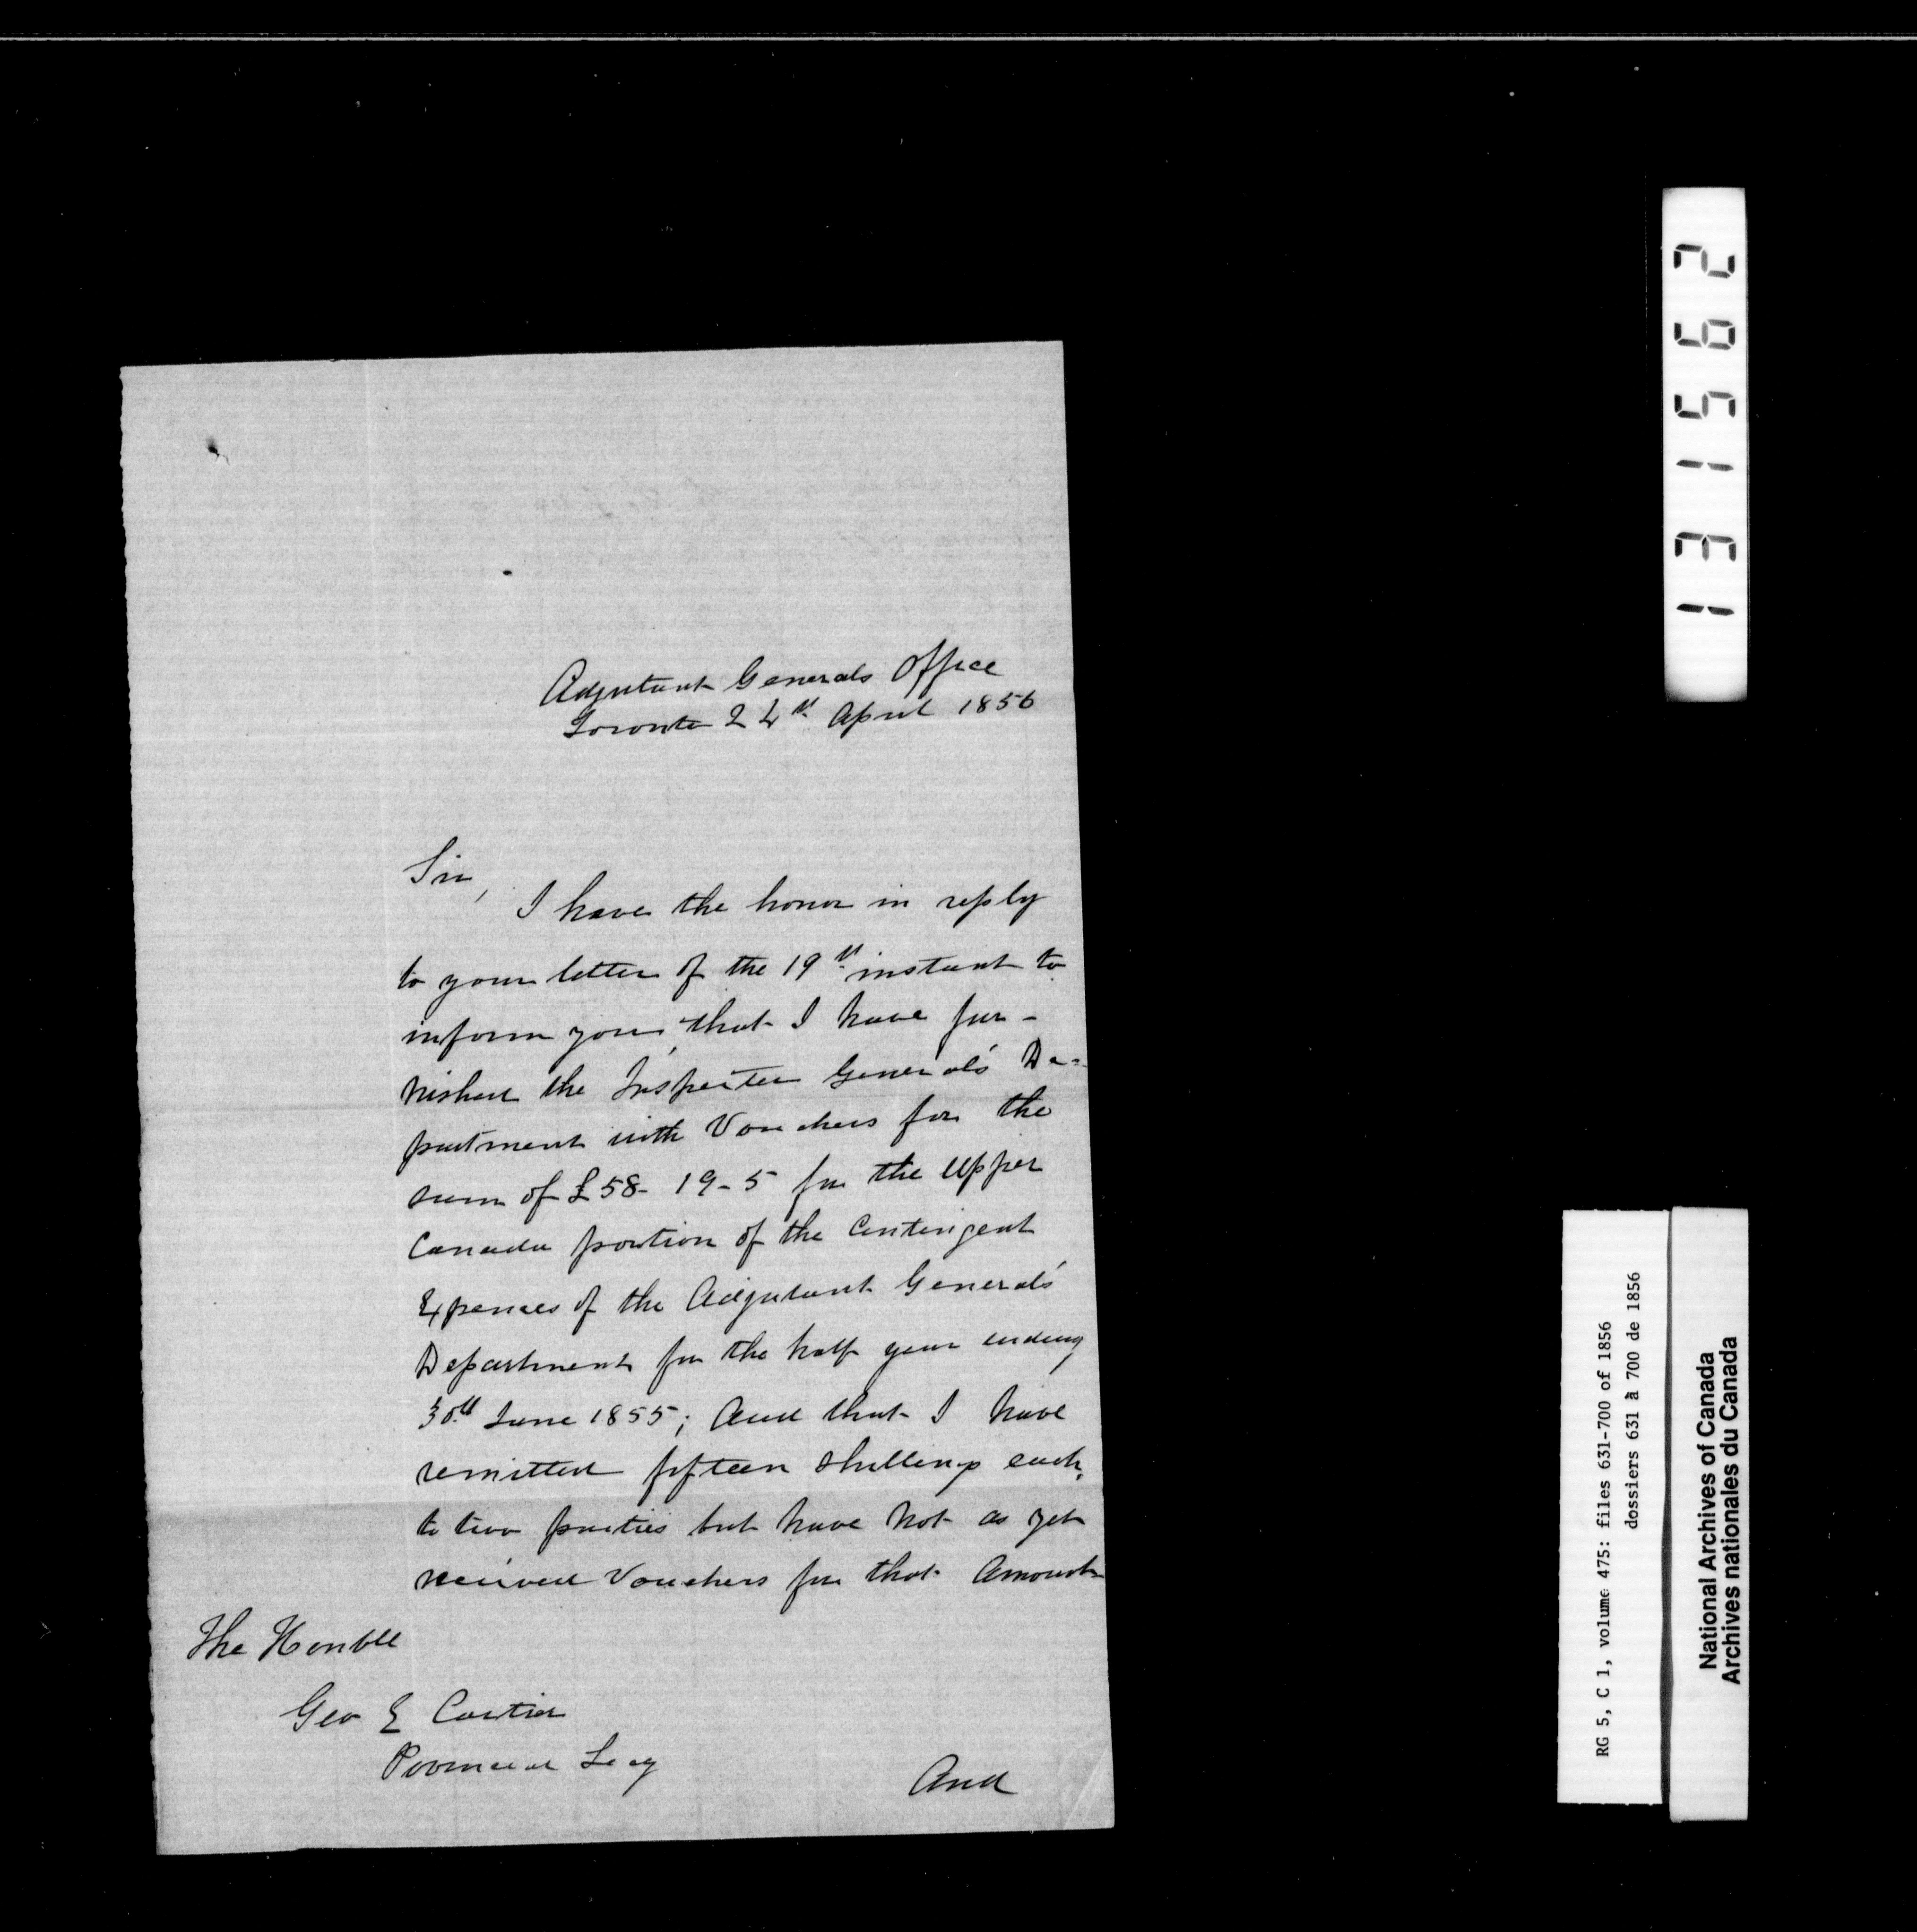 Adjutant Generals Office
Toronto 24th April 1856
Sir,
I have the honor in reply
to your letter of the 19th instant to
inform you, that I have fur-
nished the Inspector General's De=
partment with Vouchers for the
sum of £58-19-5 for the Upper
Canada portion of the Contingent
Expenses of the Adjutant General's
Department for the half year ending
30th June 1855; and that I have
remitted fifteen shillings each,
to two parties but have not as yet
received Vouchers for that Amount
The Honble
Geo E Cartier
Provincial Secy
And
131562
RG 5, C 1, volume 475: files 631-700 of 1856
dossiers 631 à 700 de 1856
National Archives of Canada
Archives nationales du Canada